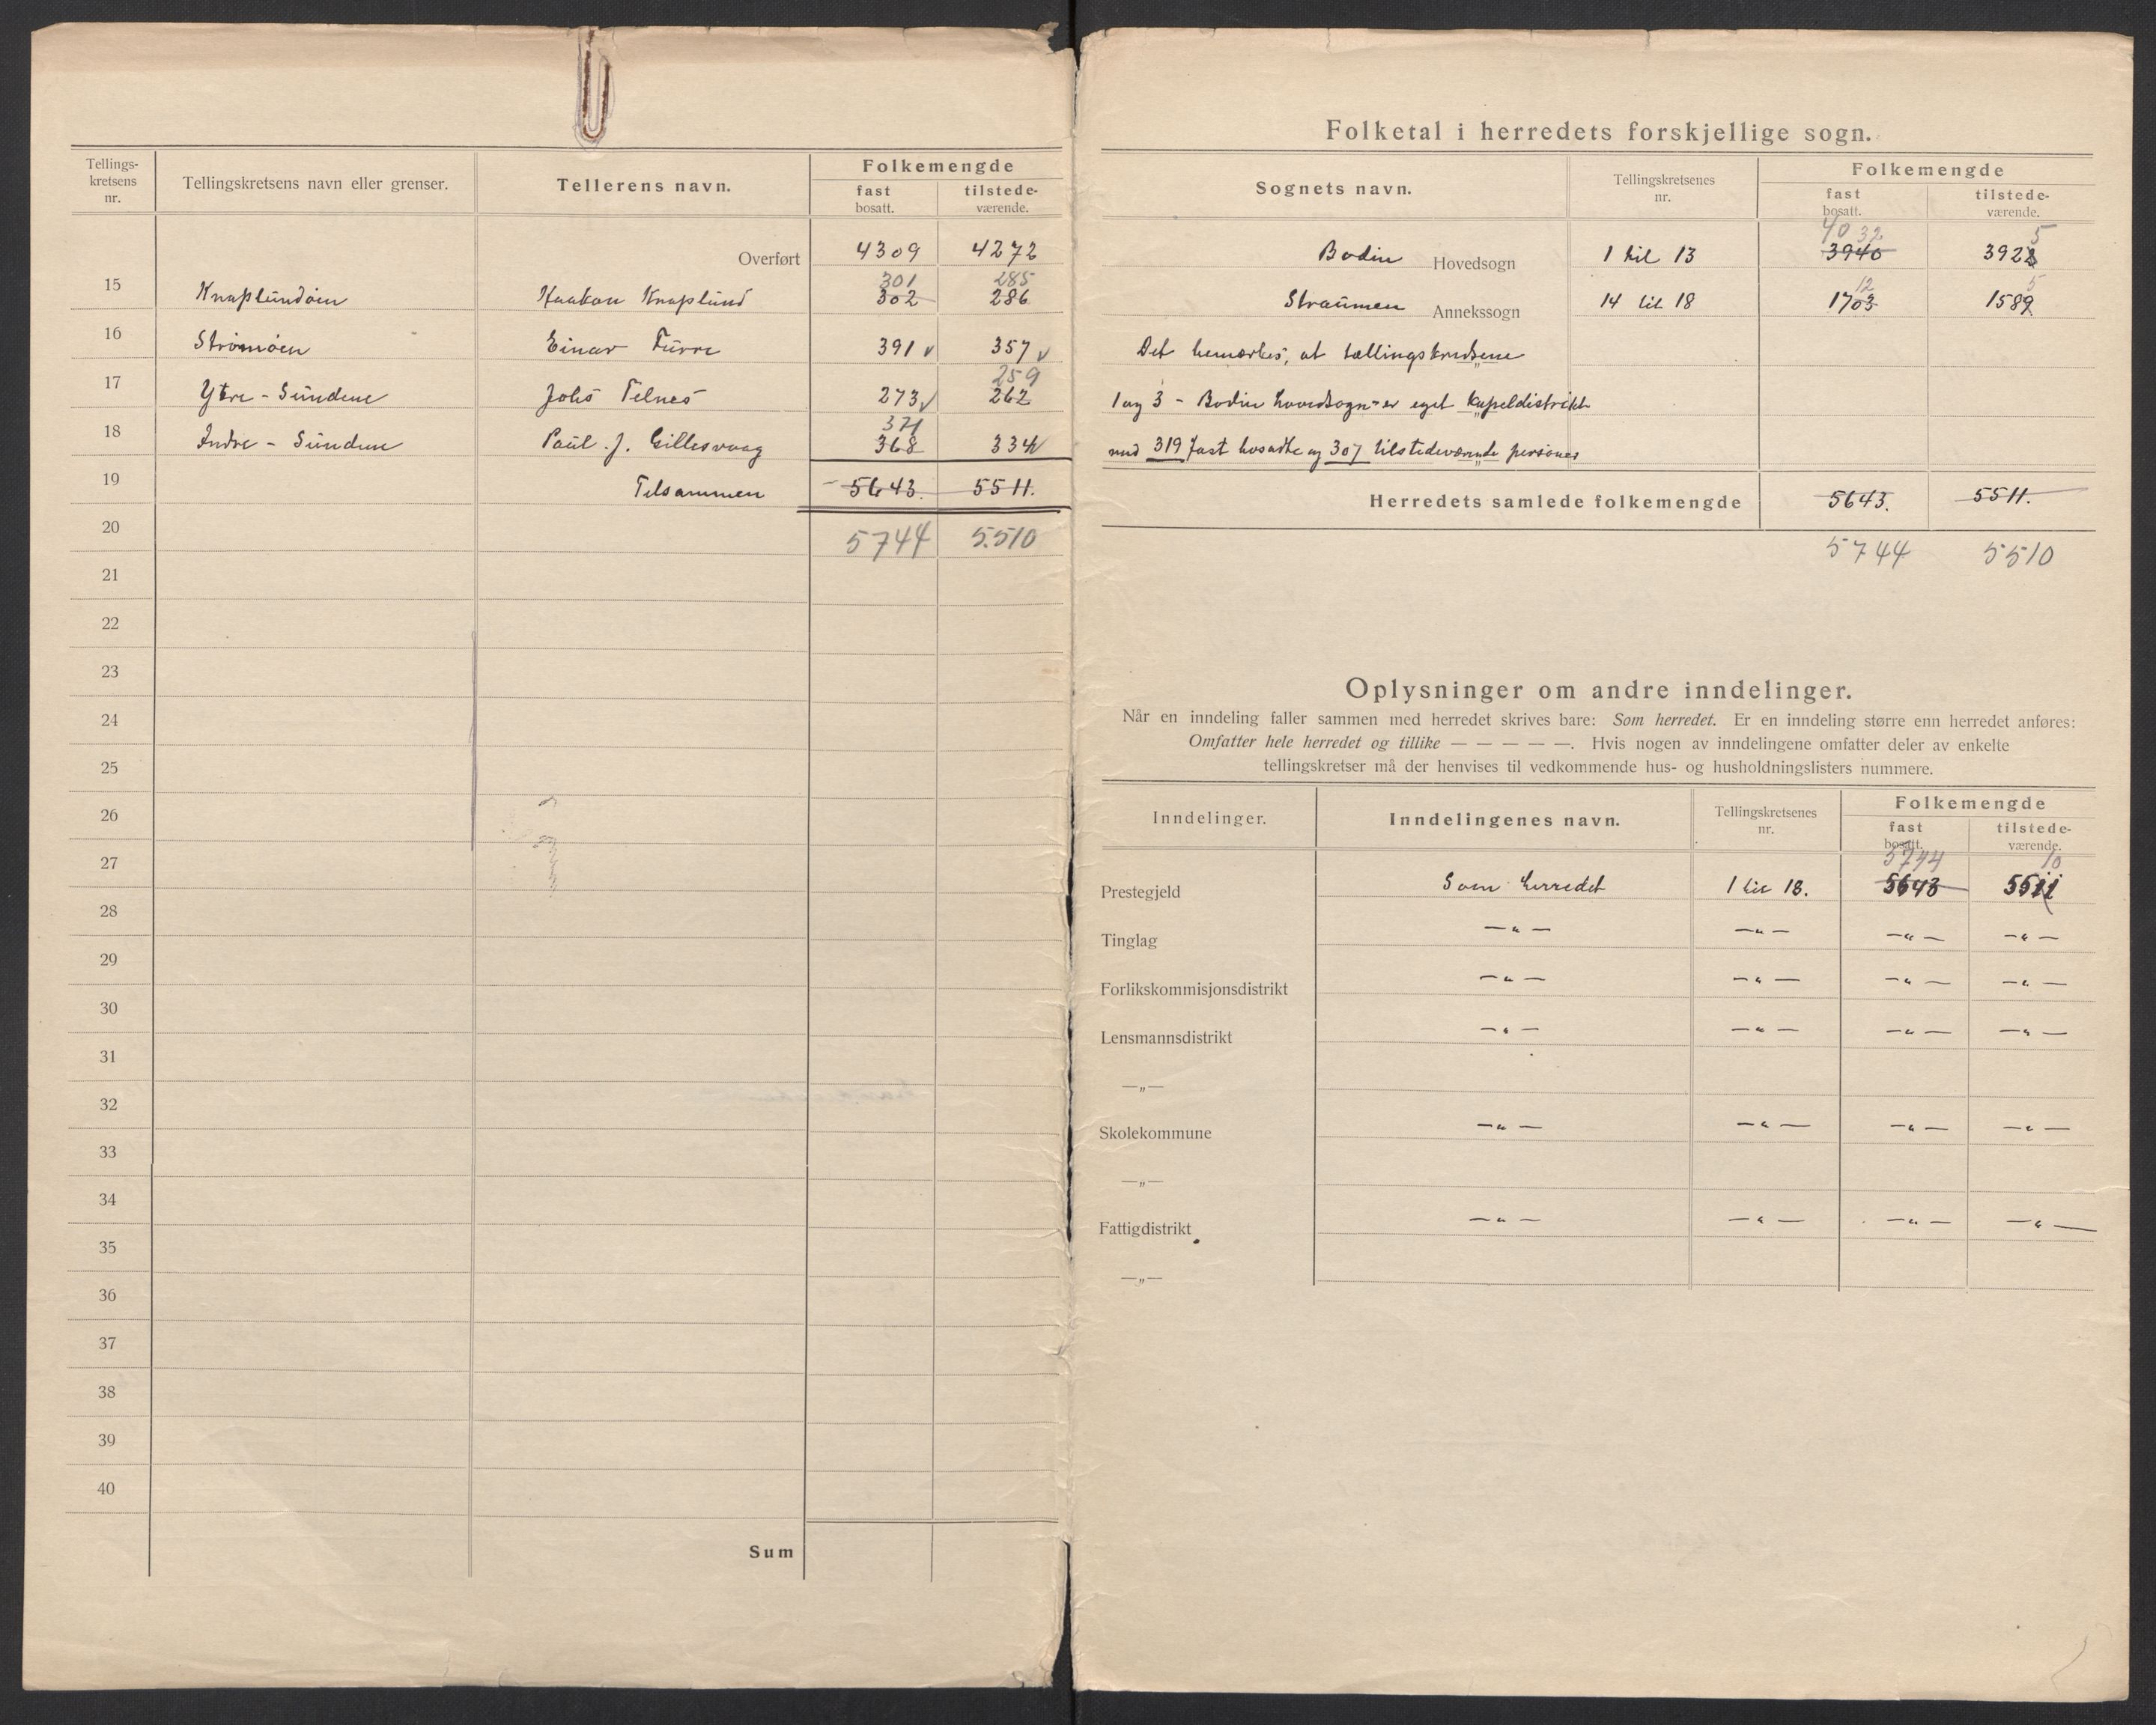 Tellings-
kretsens
nr.
Tellingskretsens navn eller grenser.
Tellerens navn.
Folkemengde
fast
bosatt.
tilstede-
værende.
Overført 4309 4272
301 285
15 Knaplundöen Haakon Knaplund 302 286
16 Strömöen Einar Furre 391 v 357 v
259
17 Ytre - Sundene Johs Telnes 273 v 262
371
18 Indre - Sundene Paul J. Gillesvaag 368 334 v
19 Tilsammen 5643. 5511.
20 5744 5510
21
22
23
24
25
26
27
28
29
30
31
32
33
34
35
36
37
38
39
40
Sum
Folketal i herredets forskjellige sogn.
Sognets navn.
Tellingskretsenes
nr.
Folkemengde
fast
bosatt.
tilstede-
værende.
4032 5
Bodin Hovedsogn 1 til 13 3940 3922
12 5
Straumen Annekssogn 14 til 18 1703 1589
Det bemærkes, at tællingskredsene
1 og 3 - Bodin hovedsogn - er eget kapeldistrikt
med 319 fast bosatte og 307 tilstedeværende personer
Herredets samlede folkemengde 5643. 5511.
5744 5510
Oplysninger om andre inndelinger.
Når en inndeling faller sammen med herredet skrives bare: Som herredet. Er en inndeling større enn herredet anføres:
Omfatter hele herredet og tillike — — — — —. Hvis nogen av inndelingene omfatter deler av enkelte
tellingskretser må der henvises til vedkommende hus- og husholdningslisters nummere.
Inndelinger.
Inndelingenes navn.
Tellingskretsenes
nr.
Folkemengde
fast
bosatt.
tilstede-
værende.
5744 10
Prestegjeld Som herredet 1 til 18. 5643 5511
Tinglag —"— —"— —"— —"—
Forlikskommisjonsdistrikt —"— —"— —"— —"—
Lensmannsdistrikt —"— —"— —"— —"—
—"—
Skolekommune —"— —"— —"— —"—
—"—
Fattigdistrikt —"— —"— —"— —"—
—"—